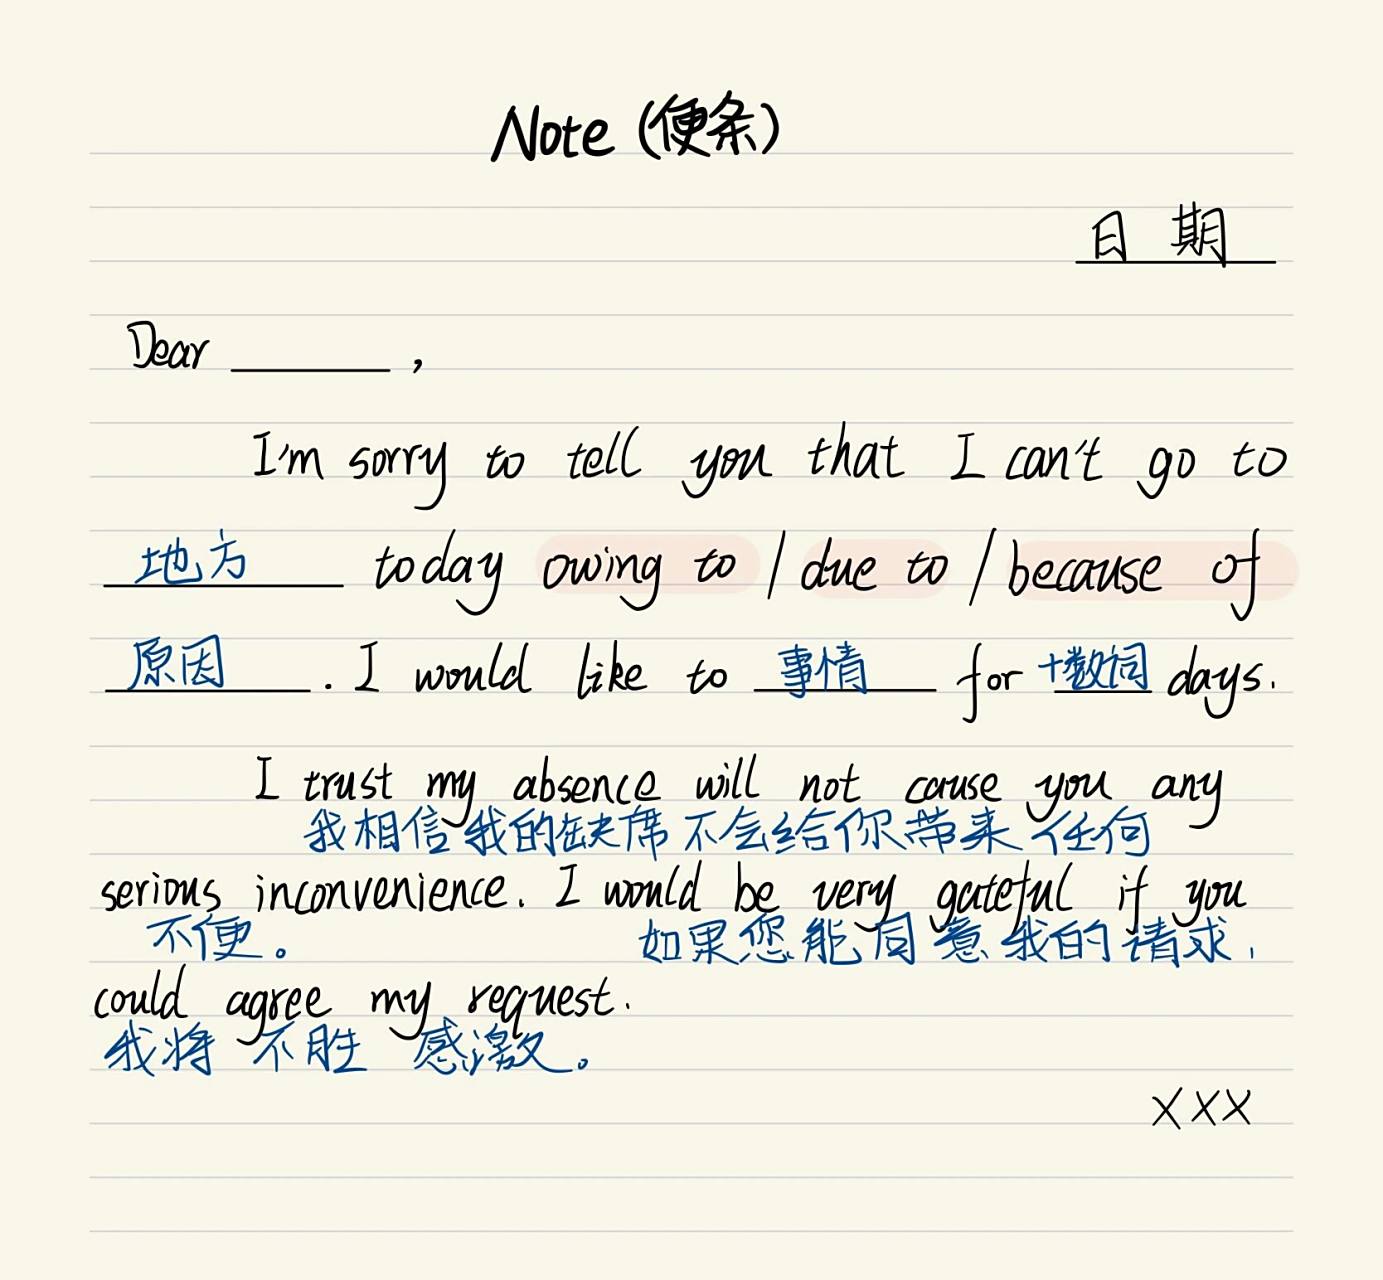 Note (便条)
日期
Dear ______ ,
I'm sorry to tell you that I can't go to
地方 today owing to / due to / because of
原因 . I would like to 事情 for +数词 days.
I trust my absence will not cause you any
我相信我的缺席不会给你带来任何
serious inconvenience. I would be very gateful if you
不便。 如果您能同意我的请求,
could agree my request.
我将不胜感激。
XXX